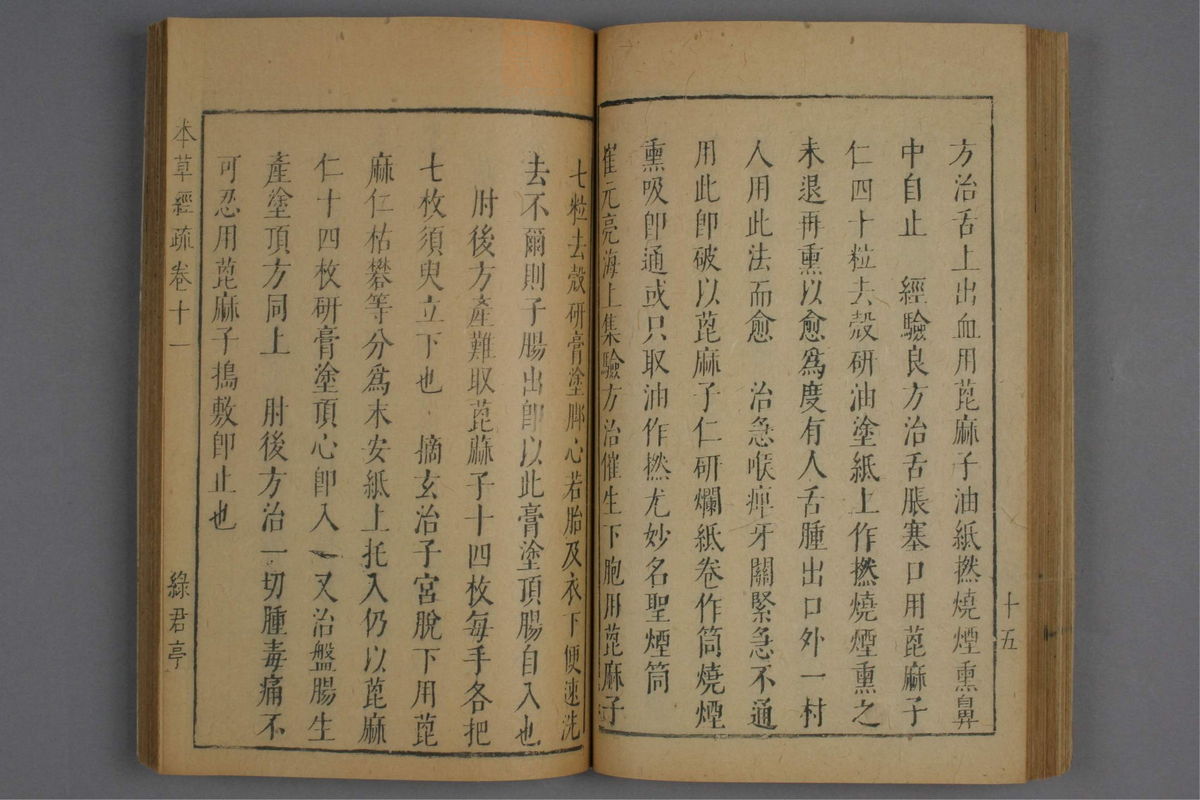 方治舌上出血用蓖麻子油紙撚燒煙熏鼻
中自止　經驗良方治舌脹塞口用蓖麻子
仁四十粒去殻研油塗紙上作撚燒煙熏之
未退再熏以愈爲度有人舌腫出口外一村
人用此法而愈　治急喉痺牙關緊急不通
用此卽破以蓖麻子仁研爛紙卷作筒燒煙
熏吸卽通或只取油作撚尤妙名聖煙筒
崔元亮海上集驗方治催生下胞用蓖麻子
十五
七粒去殻研膏塗脚心若胎及衣下便速洗
去不爾則子腸出卽以此膏塗頂腸自入也
肘後方產難取蓖麻子十四枚每手各把
七枚須臾立下也　摘玄治子宮脫下用蓖
麻仁枯礬等分爲末安紙上托入仍以蓖麻
仁十四枚研膏塗頂心卽入　又治盤腸生
產塗頂方同上　肘後方治一切腫毒痛不
可忍用蓖麻子搗敷卽止也
本草經疏卷十一
綠君亭